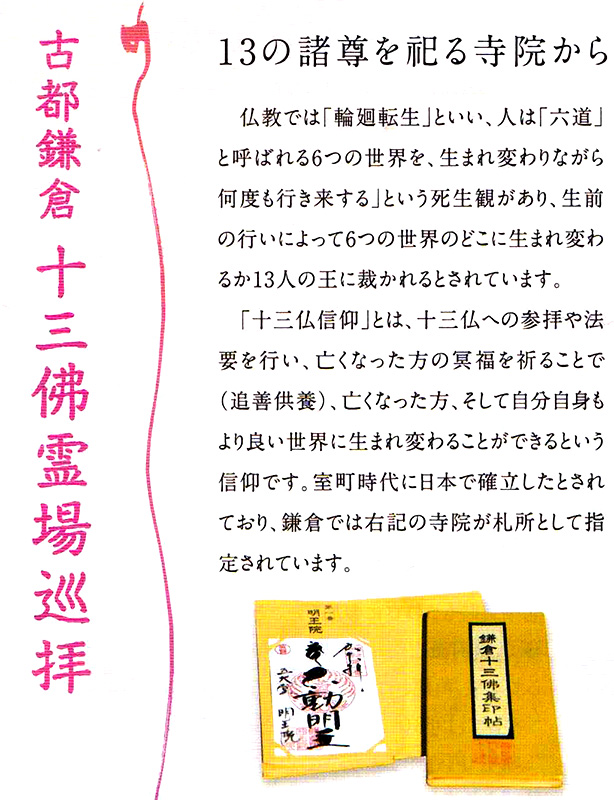 古都鎌倉 十三佛霊場巡拝
13の諸尊を祀る寺院から
仏教では「輪廻転生」といい、人は「六道」
と呼ばれる6つの世界を、生まれ変わりながら
何度も行き来する」という死生観があり、生前
の行いによって6つの世界のどこに生まれ変わ
るか13人の王に裁かれるとされています。
「十三仏信仰」とは、十三仏への参拝や法
要を行い、亡くなった方の冥福を祈ることで
（追善供養）、亡くなった方、そして自分自身も
より良い世界に生まれ変わることができるという
信仰です。室町時代に日本で確立したとされ
ており、鎌倉では右記の寺院が札所として指
定されています。
第一番
明王院
奉拝
不動明王
五大堂
明王院
鎌倉十三佛集印帖